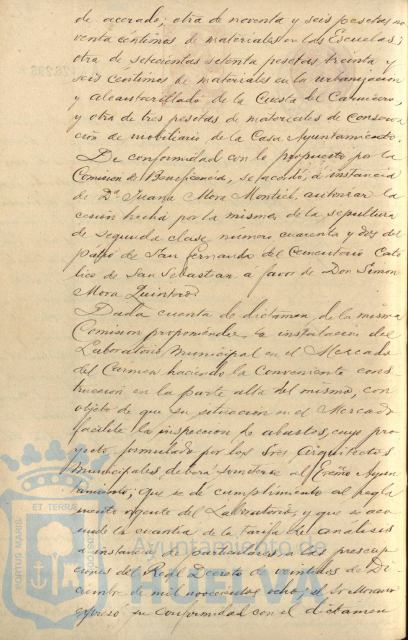 de acerado; otra de noventa y seis pesetas no
venta céntimos de materiales en las Escuelas;
otra de setecientas setenta pesetas treinta y
seis centimos de materiales en la urbanizacion
y alcantarillado de la Cuesta del Carnicero,
y otra de tres pesetas de materiales de Conserva
ción de mobiliario de la Casa Ayuntamiento.
De conformidad con lo propuesto por la
Comision de Beneficencia, se acordó, á instancia
de Dª Juana Mora Montiel, autorizar la
cesión hecha por la misma de la sepultura
de segunda clase, número cuarenta y dos del
patio de San Fernando del Cementerio Cató
lico de San Sebastian á favor de Don Simon
Mora Quintero.
Dada cuenta de dictámen de la misma
Comision proponiendo la instalacion del
Laboratorio Municipal en el Mercado
del Carmen haciendo la conveniente cons
truccion en la parte alta del mismo, con
objeto de que su situacion en el Mercado
facilite la inspeccion de abastos, cuyo pro
yecto, formulado por los Sres Arquitectos
Municipales, deberá someterse al Excmo Ayun
tamiento; que se dé cumplimiento al regla
mento vigente del Laboratorio, y que se aco
mode la cuantia de la tarifa de análisis
á instancia de particulares á las prescrip
ciones del Real Decreto de veintidos de Di
ciembre de mil novecientos ocho; el Sr Moreno
expresó su conformidad con el dictamen
PORTUS MARIS ET TERRAE CUSTODIA
Ayuntamiento de
HUELVA